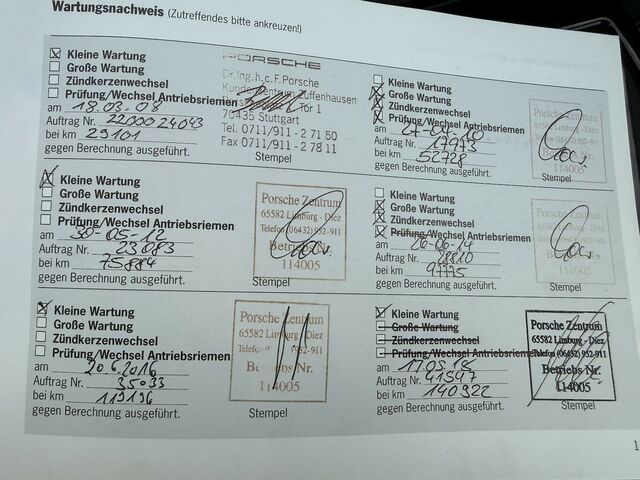 Wartungsnachweis (Zutreffendes bitte ankreuzen!)
Kleine Wartung
Große Wartung
Zündkerzenwechsel
Prüfung/Wechsel Antriebsriemen
am 18.03.08
Auftrag Nr. 2200024043
bei km 29101
gegen Berechnung ausgeführt.
PORSCHE
Dr.Ing.h.c.F.Porsche
Zuffenhausen
Tor 1
70435 Stuttgart
Tel. 0711/911 - 2 71 50
Fax 0711/911 - 2 78 11
Stempel
Kleine Wartung
Große Wartung
Zündkerzenwechsel
Prüfung/Wechsel Antriebsriemen
am 27-04-10
Auftrag Nr. 17973
bei km 52728
gegen Berechnung ausgeführt.
Porsche Zentrum
65582 Limburg - Diez
114005
Stempel
Kleine Wartung
Große Wartung
Zündkerzenwechsel
Prüfung/Wechsel Antriebsriemen
am 30-05-12
Auftrag Nr. 23083
bei km 75884
gegen Berechnung ausgeführt.
Porsche Zentrum
65582 Limburg - Diez
Telefon (06432) 952-911
Betriebs Nr.
114005
Stempel
Kleine Wartung
Große Wartung
Zündkerzenwechsel
Prüfung/Wechsel Antriebsriemen
am 26-06-14
Auftrag Nr. 28810
bei km 97775
gegen Berechnung ausgeführt.
Porsche Zentrum
65582 Limburg - Diez
114005
Stempel
Kleine Wartung
Große Wartung
Zündkerzenwechsel
Prüfung/Wechsel Antriebsriemen
am 20.6.2016
Auftrag Nr. 35033
bei km 119196
gegen Berechnung ausgeführt.
Porsche Zentrum
65582 Limburg - Diez
952-911
Nr.
114005
Stempel
Kleine Wartung
Große Wartung
Zündkerzenwechsel
Prüfung/Wechsel Antriebsriemen
am 17.05.18
Auftrag Nr. 41547
bei km 140922
gegen Berechnung ausgeführt.
Porsche Zentrum
65582 Limburg - Diez
Telefon (06432) 952-911
Betriebs Nr.
114005
Stempel
1